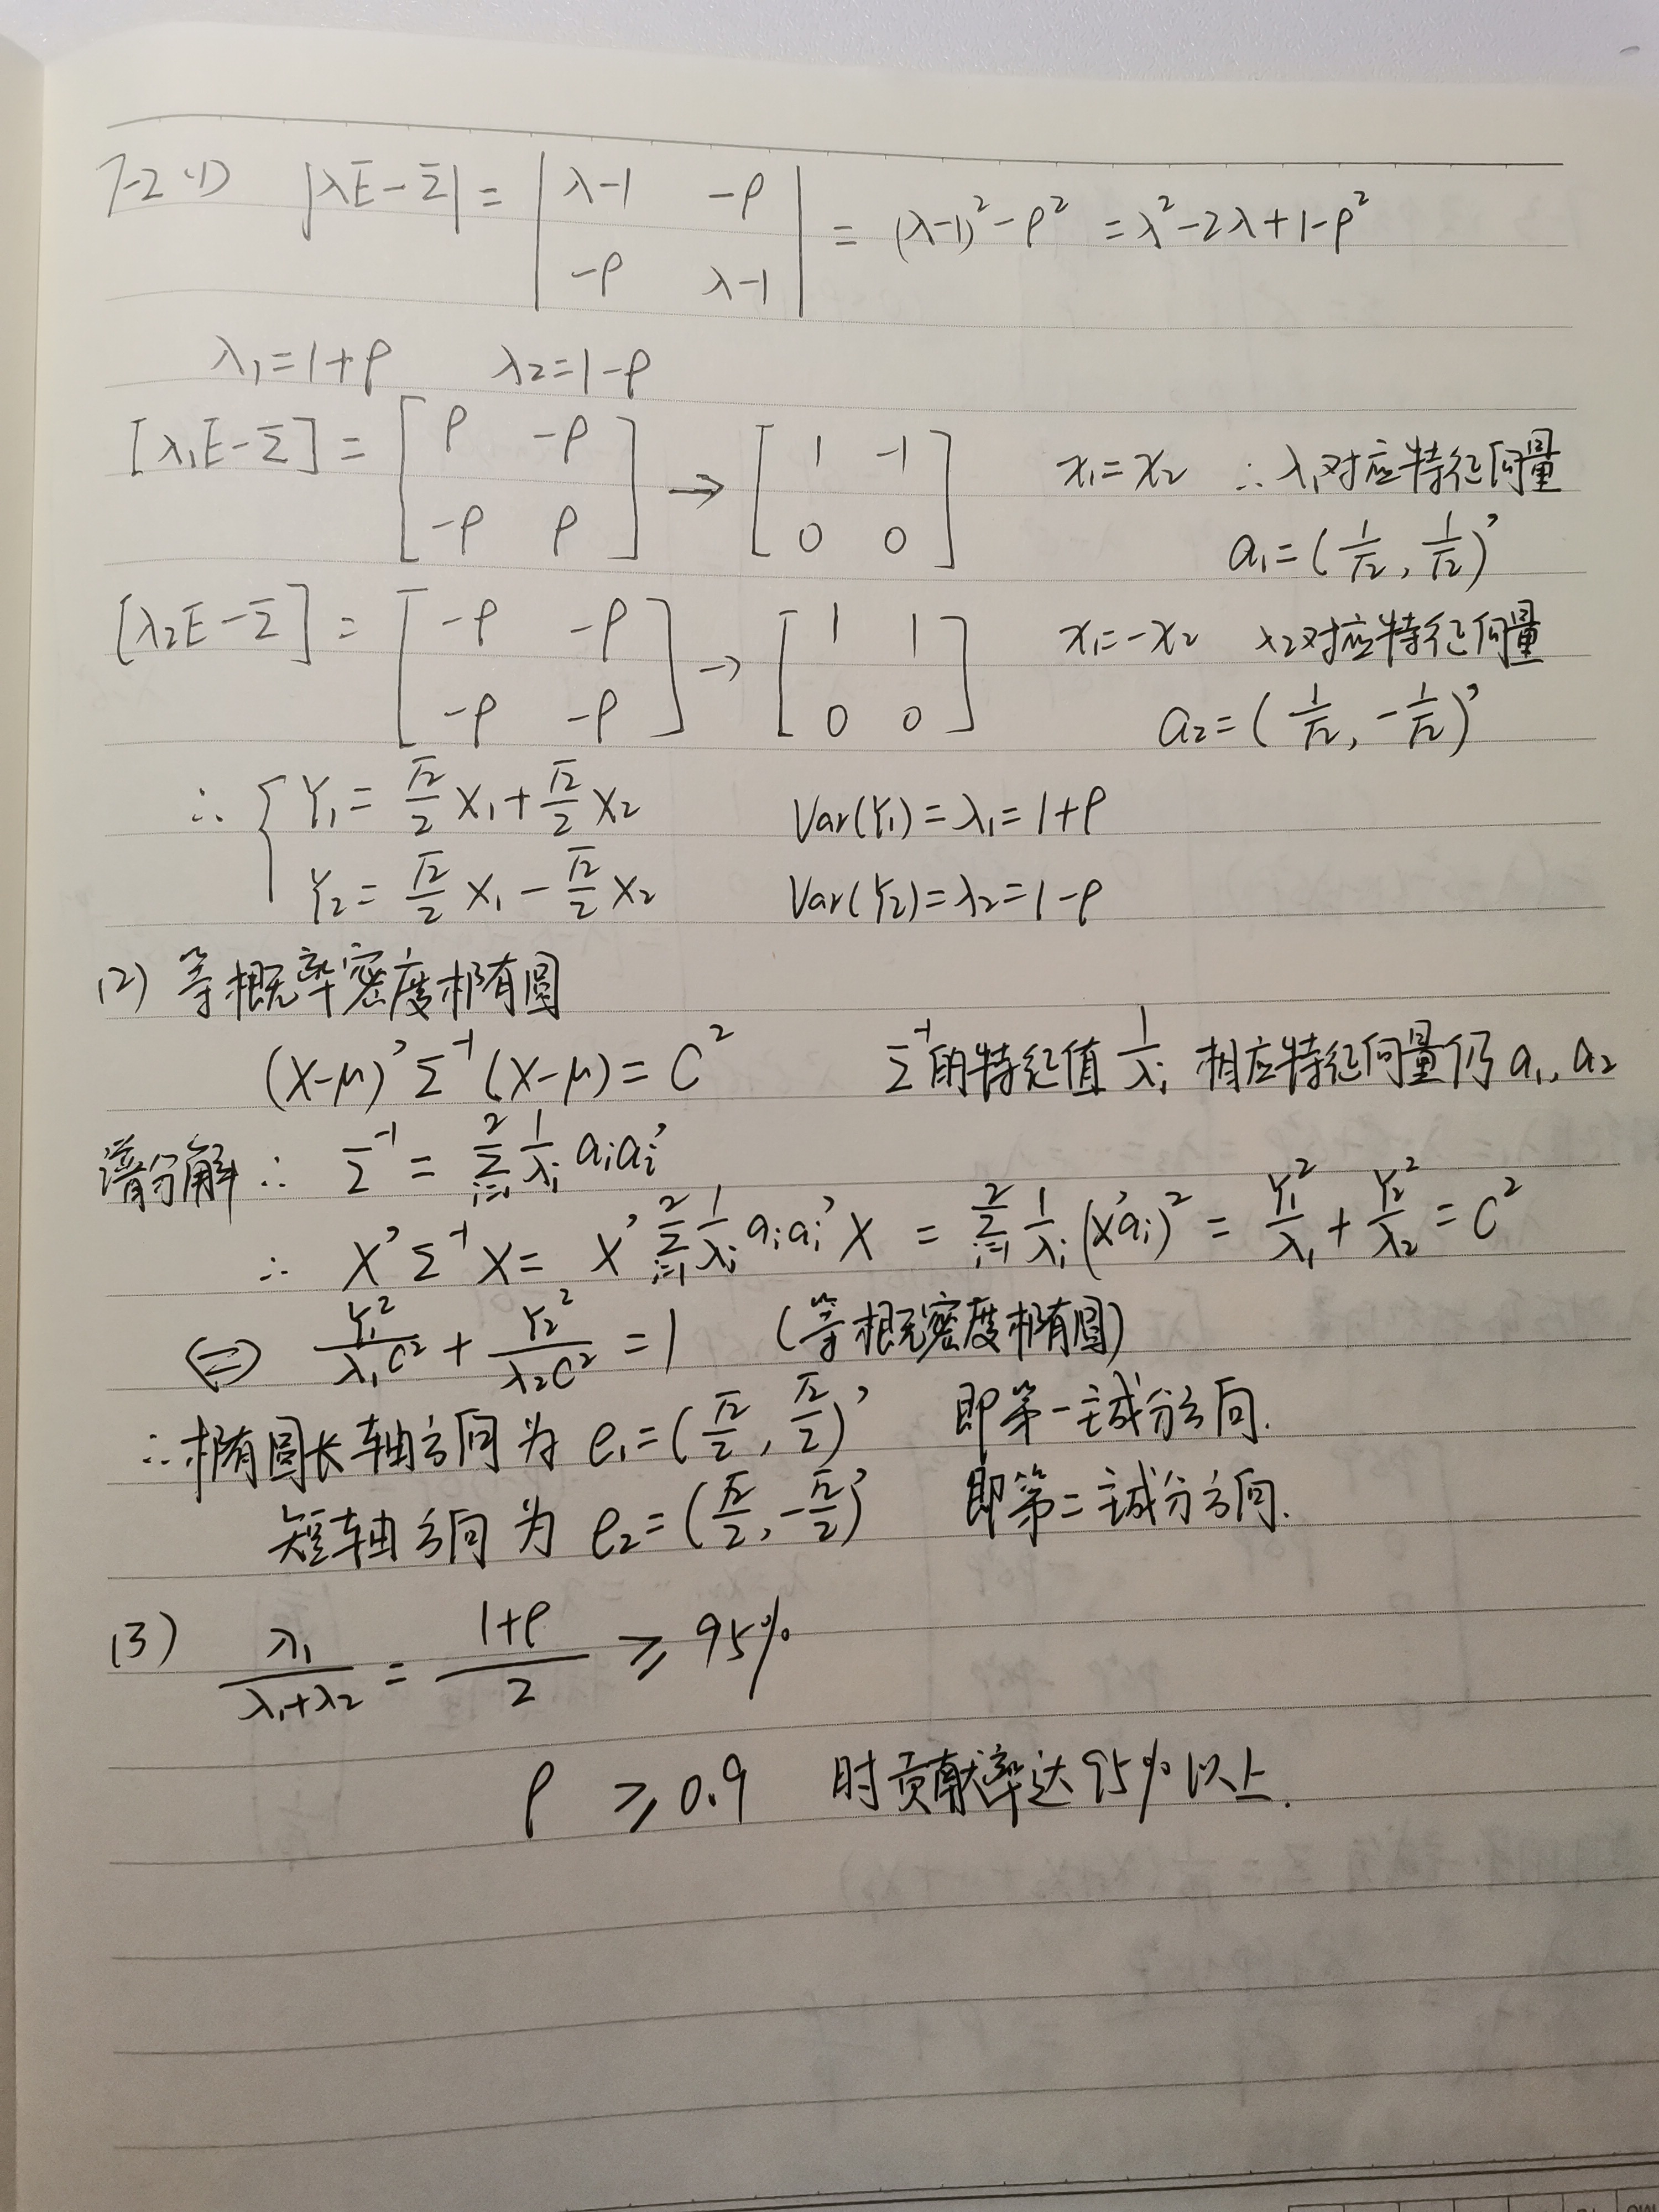 7-2 (1) |λE-Σ| = | λ-1 -ρ ; -ρ λ-1 | = (λ-1)²-ρ² = λ²-2λ+1-ρ²
λ₁=1+ρ λ₂=1-ρ
[λ₁E-Σ] = [ρ -ρ ; -ρ ρ] → [1 -1 ; 0 0] x₁=x₂ ∴λ₁对应特征向量
a₁=(1/√2, 1/√2)'
[λ₂E-Σ] = [-ρ -ρ ; -ρ -ρ] → [1 1 ; 0 0] x₁=-x₂ λ₂对应特征向量
a₂=(1/√2, -1/√2)'
∴ { Y₁ = √2/2 X₁ + √2/2 X₂ Var(Y₁)=λ₁=1+ρ
Y₂ = √2/2 X₁ - √2/2 X₂ Var(Y₂)=λ₂=1-ρ
(2) 等概率密度椭圆
(X-μ)'Σ⁻¹(X-μ)=C² Σ⁻¹的特征值 1/λᵢ 相应特征向量仍a₁,a₂
谱分解 ∴ Σ⁻¹ = Σᵢ₌₁² 1/λᵢ aᵢaᵢ'
∴ X'Σ⁻¹X = X' Σᵢ₌₁² 1/λᵢ aᵢaᵢ' X = Σᵢ₌₁² 1/λᵢ (X'aᵢ)² = Y₁²/λ₁ + Y₂²/λ₂ = C²
⇔ Y₁²/(λ₁C²) + Y₂²/(λ₂C²) = 1 (等概密度椭圆)
∴椭圆长轴方向为 e₁=(√2/2, √2/2)' 即第一主成分方向.
短轴方向为 e₂=(√2/2, -√2/2)' 即第二主成分方向.
(3) λ₁/(λ₁+λ₂) = (1+ρ)/2 ⩾ 95%
ρ ⩾ 0.9 时贡献率达95%以上.